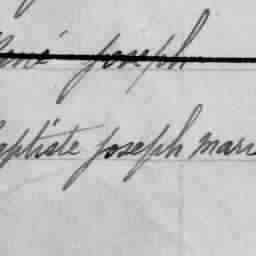 René joseph
Baptiste joseph mari